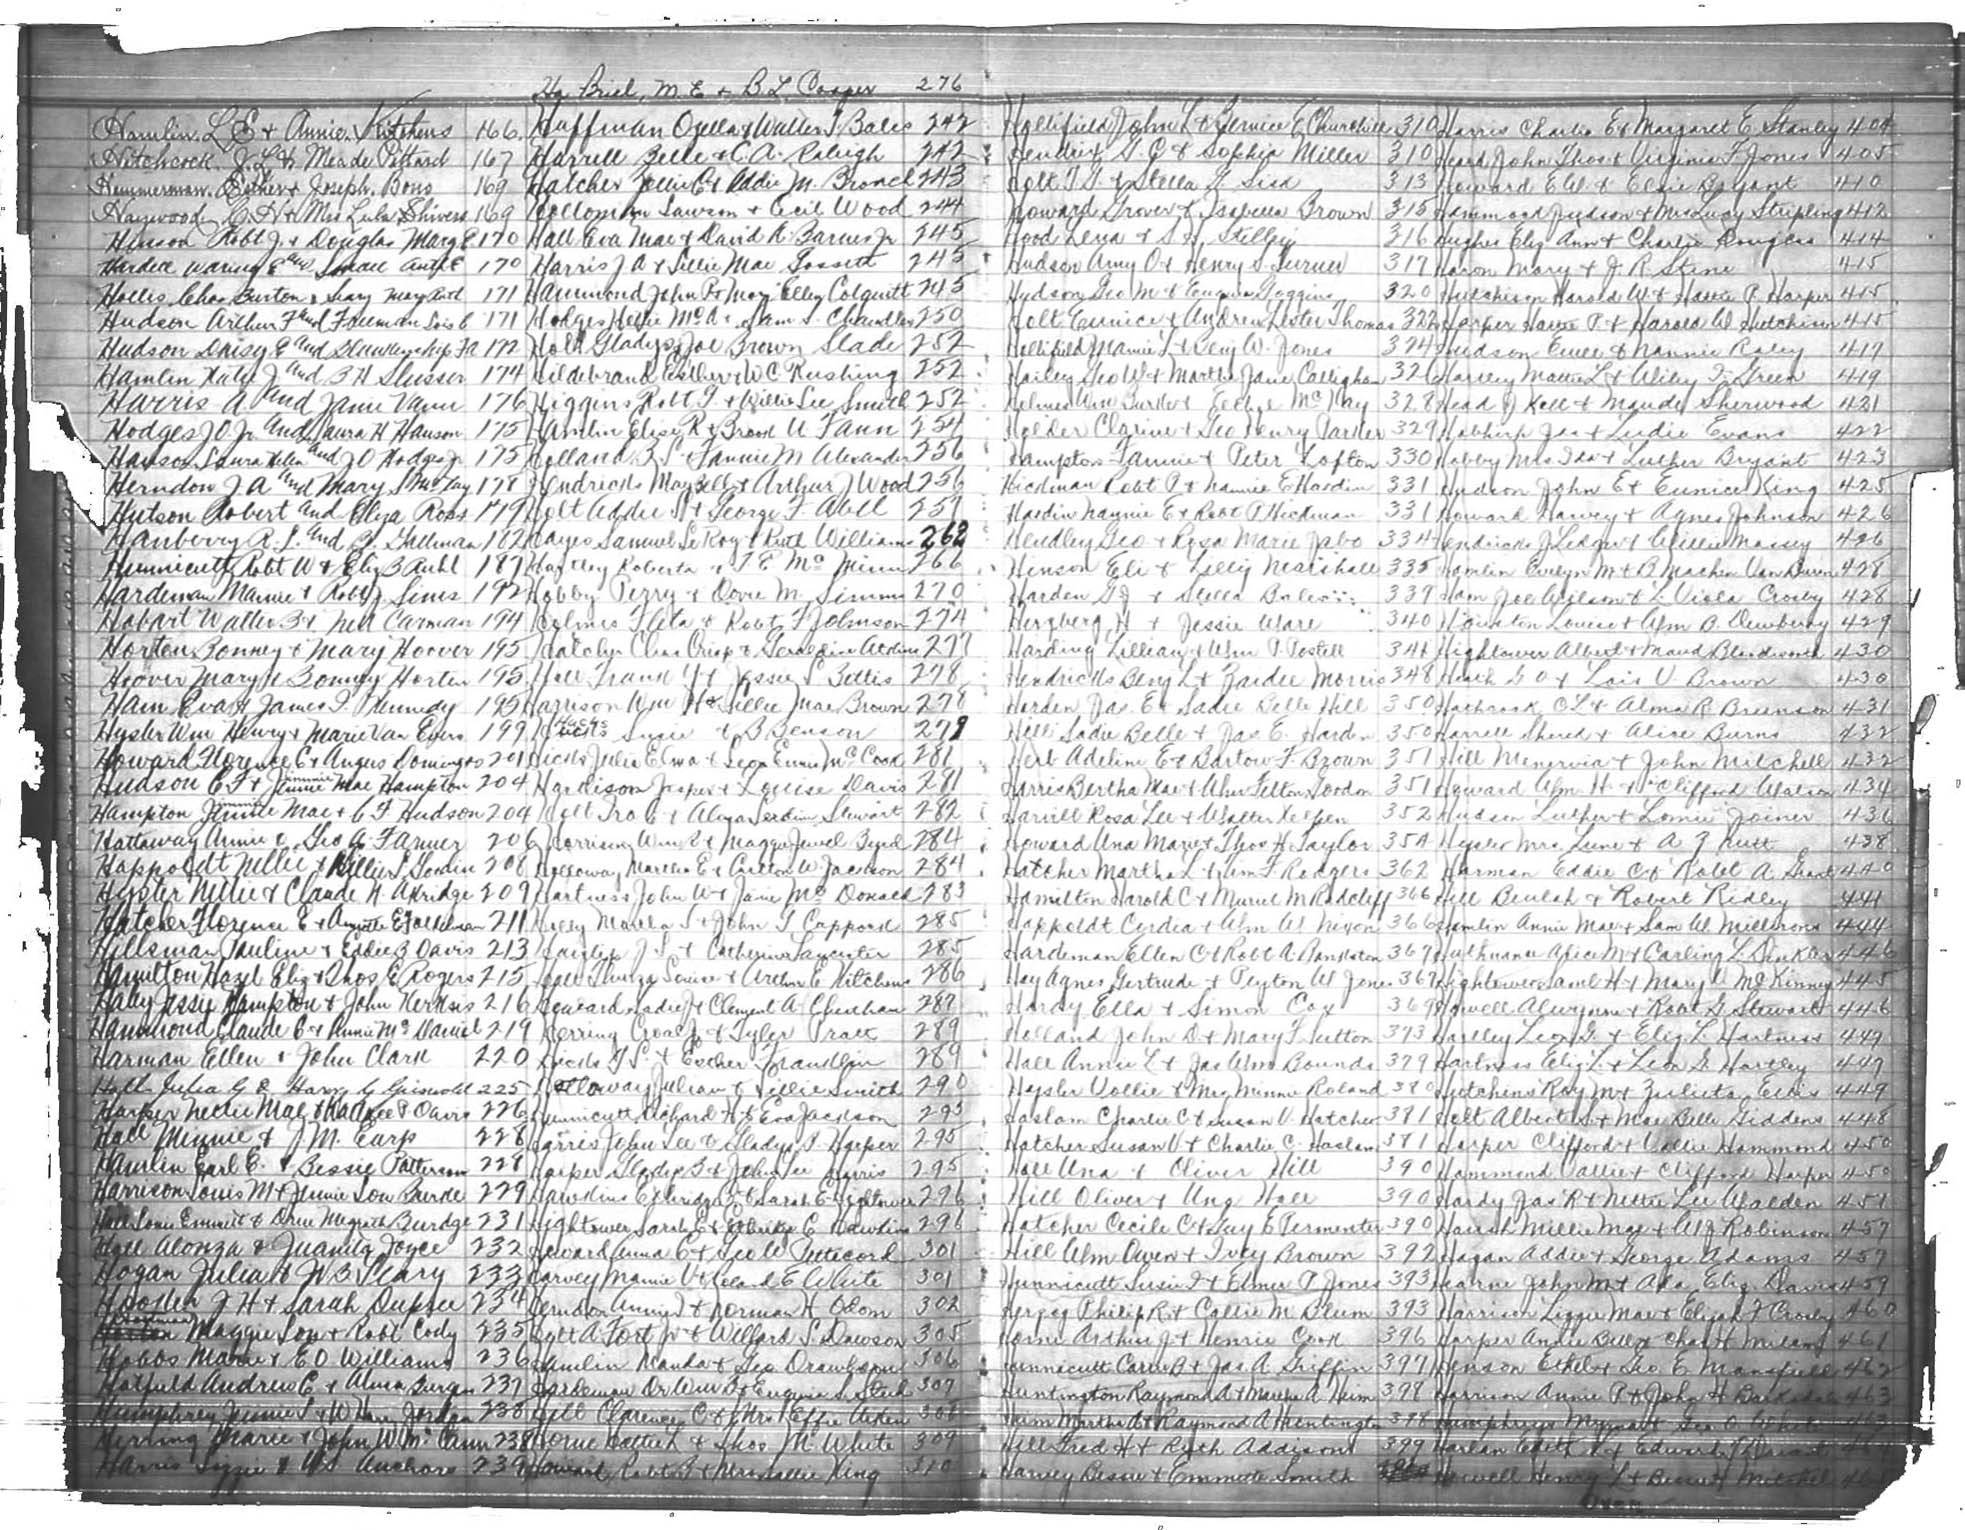 Ha Briel, M. E & B. L. Cooper 276
Hamlin L E & Annie Kitchens 166
Hitchcock J. L. & Meade Pittard 167
Hemmerman Esther & Joseph Bono 169
Haywood C. H & Mrs Lula Shivers 169
Hinson Robt J. & Douglas Marg E 170
Hardee Waring E and Small Anth E 170
Hollis Chas Burton & Seay Mary 171
Hudson Arthur F and Freeman Lois E 171
Hudson Daisy E and 172
Hamlin Katie J and B H Slusser 174
Harris A and Janie Vann 176
Hodges J O Jr. and Laura H Hanson 175
Hanson Laura Helen and J O Hodges Jr 175
Herndon J A and Mary S McKay 178
Hutson Robert and Elyza Ross 179
Hanberry R. L. and 182
Hunnicutt Robt W & Eliz B Auhl 187
Hardeman Mamie & Robt J. Sims 192
Hobart Walter B & Nell Carman 194
Horton Bonney & Mary Hoover 195
Hoover Mary & Bonney Horton 195
Ham Eva & James T. Kennedy 195
Hysler Wm Henry & Marie Van Evers 199
Howard Florence E & Angus Domingos 201
Hudson C F & Jimmie Mae Hampton 204
Hampton Jimmie Mae & C F Hudson 204
Hattaway Annie & Geo A. Farmer 206
Happoldt Nellie & Willie S. Gordin 208
Hysler Nellie & Claude H. Akridge 209
Hatcher Florence E & 211
Hillsman Pauline & Eddie B Davis 213
Hamilton Hazel Eliz & Thos E. Rogers 215
Haby Jessie Hampton & John Kerkins 216
Hammond Claude C & Annie McDaniel 219
Harman Ellen & John Clark 220
Hall Julia G & Harry C Griswold 225
Harper Nettie Mae & Davis 226
Hall Minnie & J. M. Earp 228
Hamlin Earl E. & Bessie Patterson 228
Harrison Louis M & Jennie Lou Burde 229
Hall Louis Emmett & Drue Megrath Burdge 231
Hall Alonza & Juanita Joyce 232
Hogan Julia & W B Seary 233
Hooten J H & Sarah Dupree 234
Maggie Lou & Robt Cody 235
Hobbs Mamie & E O Williams 236
Hatfield Andrew C & Alma Burgin 237
Humphrey Jennie S & W Henry Jordan 238
Herring Marie & John W McCann 238
Harris Lizzie & W. S. Anchors 239
Huffman Ozella & Walter T. Bales 242
Harrell Belle & C. A. Raleigh 242
Hatcher Zollie C & Addie M. Branch 243
Holloman Lawson & Cecil Wood 244
Hall Eva Mae & David R. Barnes Jr 245
Harris J A & Lillie Mae Gossett 245
Hammond John P & Mary Elley Colquitt 245
Hodges Hettie McA & Sam S. Chandler 250
Holt Gladys & Joe Brown Slade 252
Hildebrand Esther & W C Rushing 252
Higgins Robt F & Willie Lee Smith 252
Hamlin Elise R & Brook U Fann 254
Holland B. S. & Fannie M Alexander 256
Hendricks May Bell & Arthur J Wood 256
Holt Addie S & George F. Abel 257
Hayes Samuel LeRoy & Ruth Williams 262
Hartley Roberta & T E McMinn 266
Hobby Perry & Dovie M. Simms 270
Holmes Fleta & Robt F Johnson 274
Hatcher Chas Crisp & Geraldine 277
Hall Frank Y & Jessie S Bettis 278
Harrison Wm H & Lillie Mae Brown 278
Hucks Susie & B Benson 279
Hicks Julia Elma & Leon McCook 281
Hardison Jasper & Louise Davis 281
Holt Ira C & Stewart 282
Harrison Wm E & Maggie Jewel Byrd 284
Holloway Martha E & Carlton W Jackson 284
Hartness John W & Janie McDonald 283
Holly Marilla S & John T Cappock 285
Haislip J. S. & Catherine Lassiter 285
Hall Louise & Arthur E Kitchens 286
Howard Sadie & Clement A. Cheatham 287
Herring & Tyler Pratt 289
Hicks T. S. & Esther Franklin 289
Holloway Julian & Lillie Smith 290
Hunnicutt Richard H & Eva Jackson 293
Harris John Lee & Gladys B. Harper 295
Harper Gladys B & John Lee Harris 295
Hawkins Etheridge E & Sarah E Hightower 296
Hightower Sarah E & Etheridge E Hawkins 296
Howard Anna C & Geo W Puttecord 301
Harvey Mamie V & Leland E White 301
Herndon Annie & Norman H Odom 302
Holt A Fort Jr & Willard S. Dawson 305
Hamlin Manda & Geo 306
Hardeman Dr Wm B & Eugenia S. 307
Hill Clarence C & Mrs Effie Aiken 308
Horne Hattie L & Thos M White 309
Howard Robt B & Mrs Sallie King 310
Hollifield John L & Bernice E Churchill 310
Hendrix G. C & Sophia Miller 310
Holt T. G. & Stella G. Sisk 313
Howard Grover & Isabella Brown 315
Hood Lena & S. Stilley 316
Hudson Amy O & Henry S. Turner 317
Hudson Geo M & Eugenia Goggins 320
Holt Eunice & Andrew Lester Thomas 322
Hollifield Mamie L & Benj W. Jones 324
Hailey Geo W & Martha Jane Callighan 326
Holmes Wm Burke & McKay 328
Holder Clarine & Geo Henry Parker 329
Hampton Fannie & Peter Lofton 330
Hickman Robt P & Nannie E Hardin 331
Hardin Nannie E & Robt P Hickman 331
Hendley Geo & Rosa Marie Jabo 334
Henson Eli & Lilly Marshall 335
Harden G J & Stella 337
Herzberg H & Jessie Ware 340
Harding Lillian & Wm P. Postell 341
Hendricks Benj L & Zaidee Morris 348
Harden Jas. E & Sadie Belle Hill 350
Hill Sadie Belle & Jas E. Harden 350
Herb Adeline E & Bartow F. Brown 351
Harris Bertha Mae & Wm Felton Gordon 351
Harrell Rosa Lee & Walter Kelpen 352
Howard Una Marie & Thos H Taylor 354
Hatcher Martha L & Wm F. Rodgers 362
Hamilton Harold C & Muriel M Radcliff 366
Happoldt Cyrdia & Wm W. Nixon 366
Hardeman Ellen C & Robt A Bankston 367
Hay Agnes Gertrude & Peyton W Jones 367
Hardy Ella & Simon Cox 369
Holland John D & Mary F Sutton 373
Hall Annie L & Jas Wm Bounds 379
Hoysler Vollie & Mrs Minnie Roland 380
Haslam Charlie C & Susan V. Hatcher 381
Hatcher Susan V & Charlie C. Haslam 381
Hall Una & Oliver Hill 390
Hill Oliver & Una Hall 390
Hatcher Cecile C & Guy E Permenter 390
Hill Wm Owen & Ivey Brown 392
Hunnicutt Susie I & Elmer P. Jones 393
Herzog Philip R & Callie M Blum 393
Horne Arthur J & Henrie Cook 396
Hunnicutt Carrie B & Jas. A. Griffin 397
Huntington Raymond A & Martha A Heim 398
Heim Martha A & Raymond A Huntington 398
Hill Fred H & Ruth Addison 399
Harvey Bessie & Emmett Smith
Harris Charlie E & Margaret E. Stanley 404
Heard John Thos & Virginia F. Jones 405
Howard E W. & Elsie Bryant 410
Hammond Judson & Mrs Lucy Stripling 412
Hughes Eliz Ann & Charlie Douglas 414
Haron Mary & J. R Stine 415
Hutchison Harold W & Hattie P. Harper 415
Harper Hattie P. & Harold W Hutchison 415
Hudson Ewell & Nannie Raley 417
Hartley Mattie L & Wiley F. Green 419
Head J Kell & Maude Sherwood 421
Jas & Ludie Evans 422
Hobby Mrs Ida & Luther Bryant 423
Hudson John E & Eunice King 425
Howard Harvey & Agnes Johnson 426
Hendricks J Ledger & Willie Massey 426
Hamlin Evelyn M & B Macken Van Buren 428
Ham Joe Wilson & L Viola Crosby 428
Houston Louise & Wm B. Dewberry 429
Hightower Albert & Maud Bloodworth 430
Heath G O & Lois V. Brown 430
Hathrook C L & Alma R Brunson 431
Harrell Shered & Alice Burns 432
Hill Menervia & John Mitchell 432
Howard Wm H & Clifford Watson 434
Hudson Luther & Lonnie Joiner 436
Hysler Mrs June & A. J Nutt 438
Harman Eddie C & Robt A. Grant 440
Hill Beulah & Robert Ridley 441
Hamlin Annie Mae & Sam W. Millirons 444
Huthnance Alice M & Carling L. Dinkler 446
Hightower Saml H & Mary W McKinney 445
Howell & Robt G Stewart 446
Hartley Leon G. & Eliz L. Hartness 447
Hartness Eliz L. & Leon G. Hartley 447
Hutchens Roy M & Zulieta Ellis 449
Holt Albert S & Mae Belle Giddens 448
Harper Clifford & Vallie Hammond 450
Hammond Vallie & Clifford Harper 450
Hardy Jas R & Nettie Lee Walden 451
Harish Millie Mae & W J Robinson 457
Hagan Addie & George Adams 457
Hearne John M & Ada Eliz Davis 459
Harrison Lizzie Mae & Elijah F Crosby 460
Harper Annie Bell & Chas H Milam 461
Henson Ethel & Geo E Mansfield 462
Harrison Annie P & John H Barksdale 463
Humphreys Myra & Geo O White 463
Harlan Edith & Edward
Howell Henry L & Bessie Mitchell
Over